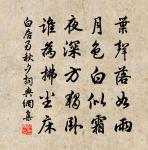 葉聲落如雨
月色白似霜
夜深方獨臥
誰為拂塵床
白居易秋夕詞典網集